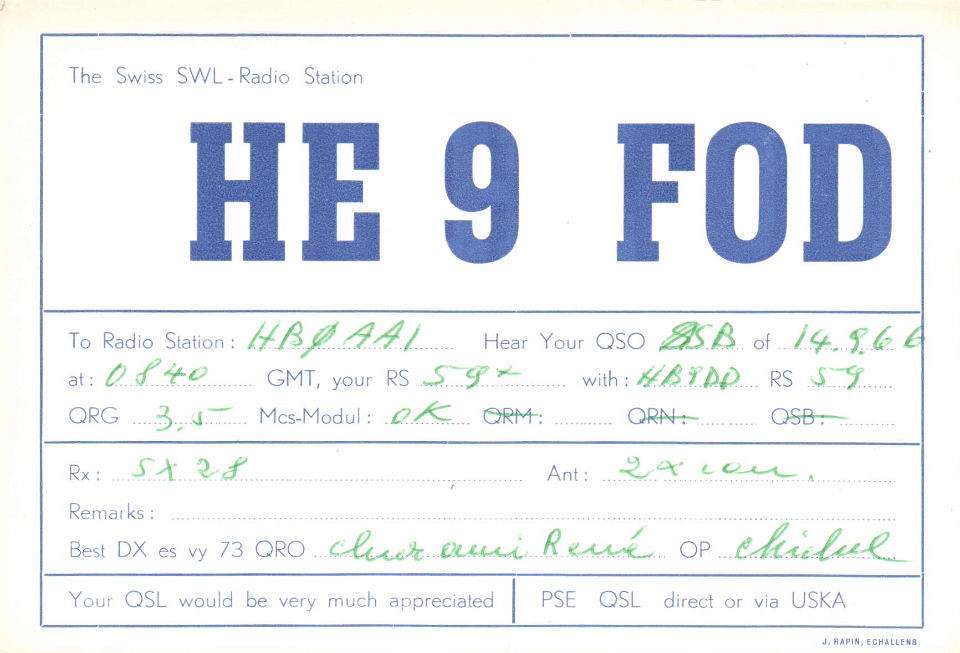 The Swiss SWL - Radio Station
HE 9 FOD
To Radio Station : HBØAAI Hear Your QSO SSB of 14.9.66
at : 0840 GMT, your RS 59+ with : HB9DD RS 59
QRG 3,5 Mcs-Modul : OK QRM : QRN : QSB :
Rx : SX 28 Ant : 2 x
Remarks :
Best DX es vy 73 QRO cher ami René OP Michel
Your QSL would be very much appreciated PSE QSL direct or via USKA
J. RAPIN, ECHALLENS